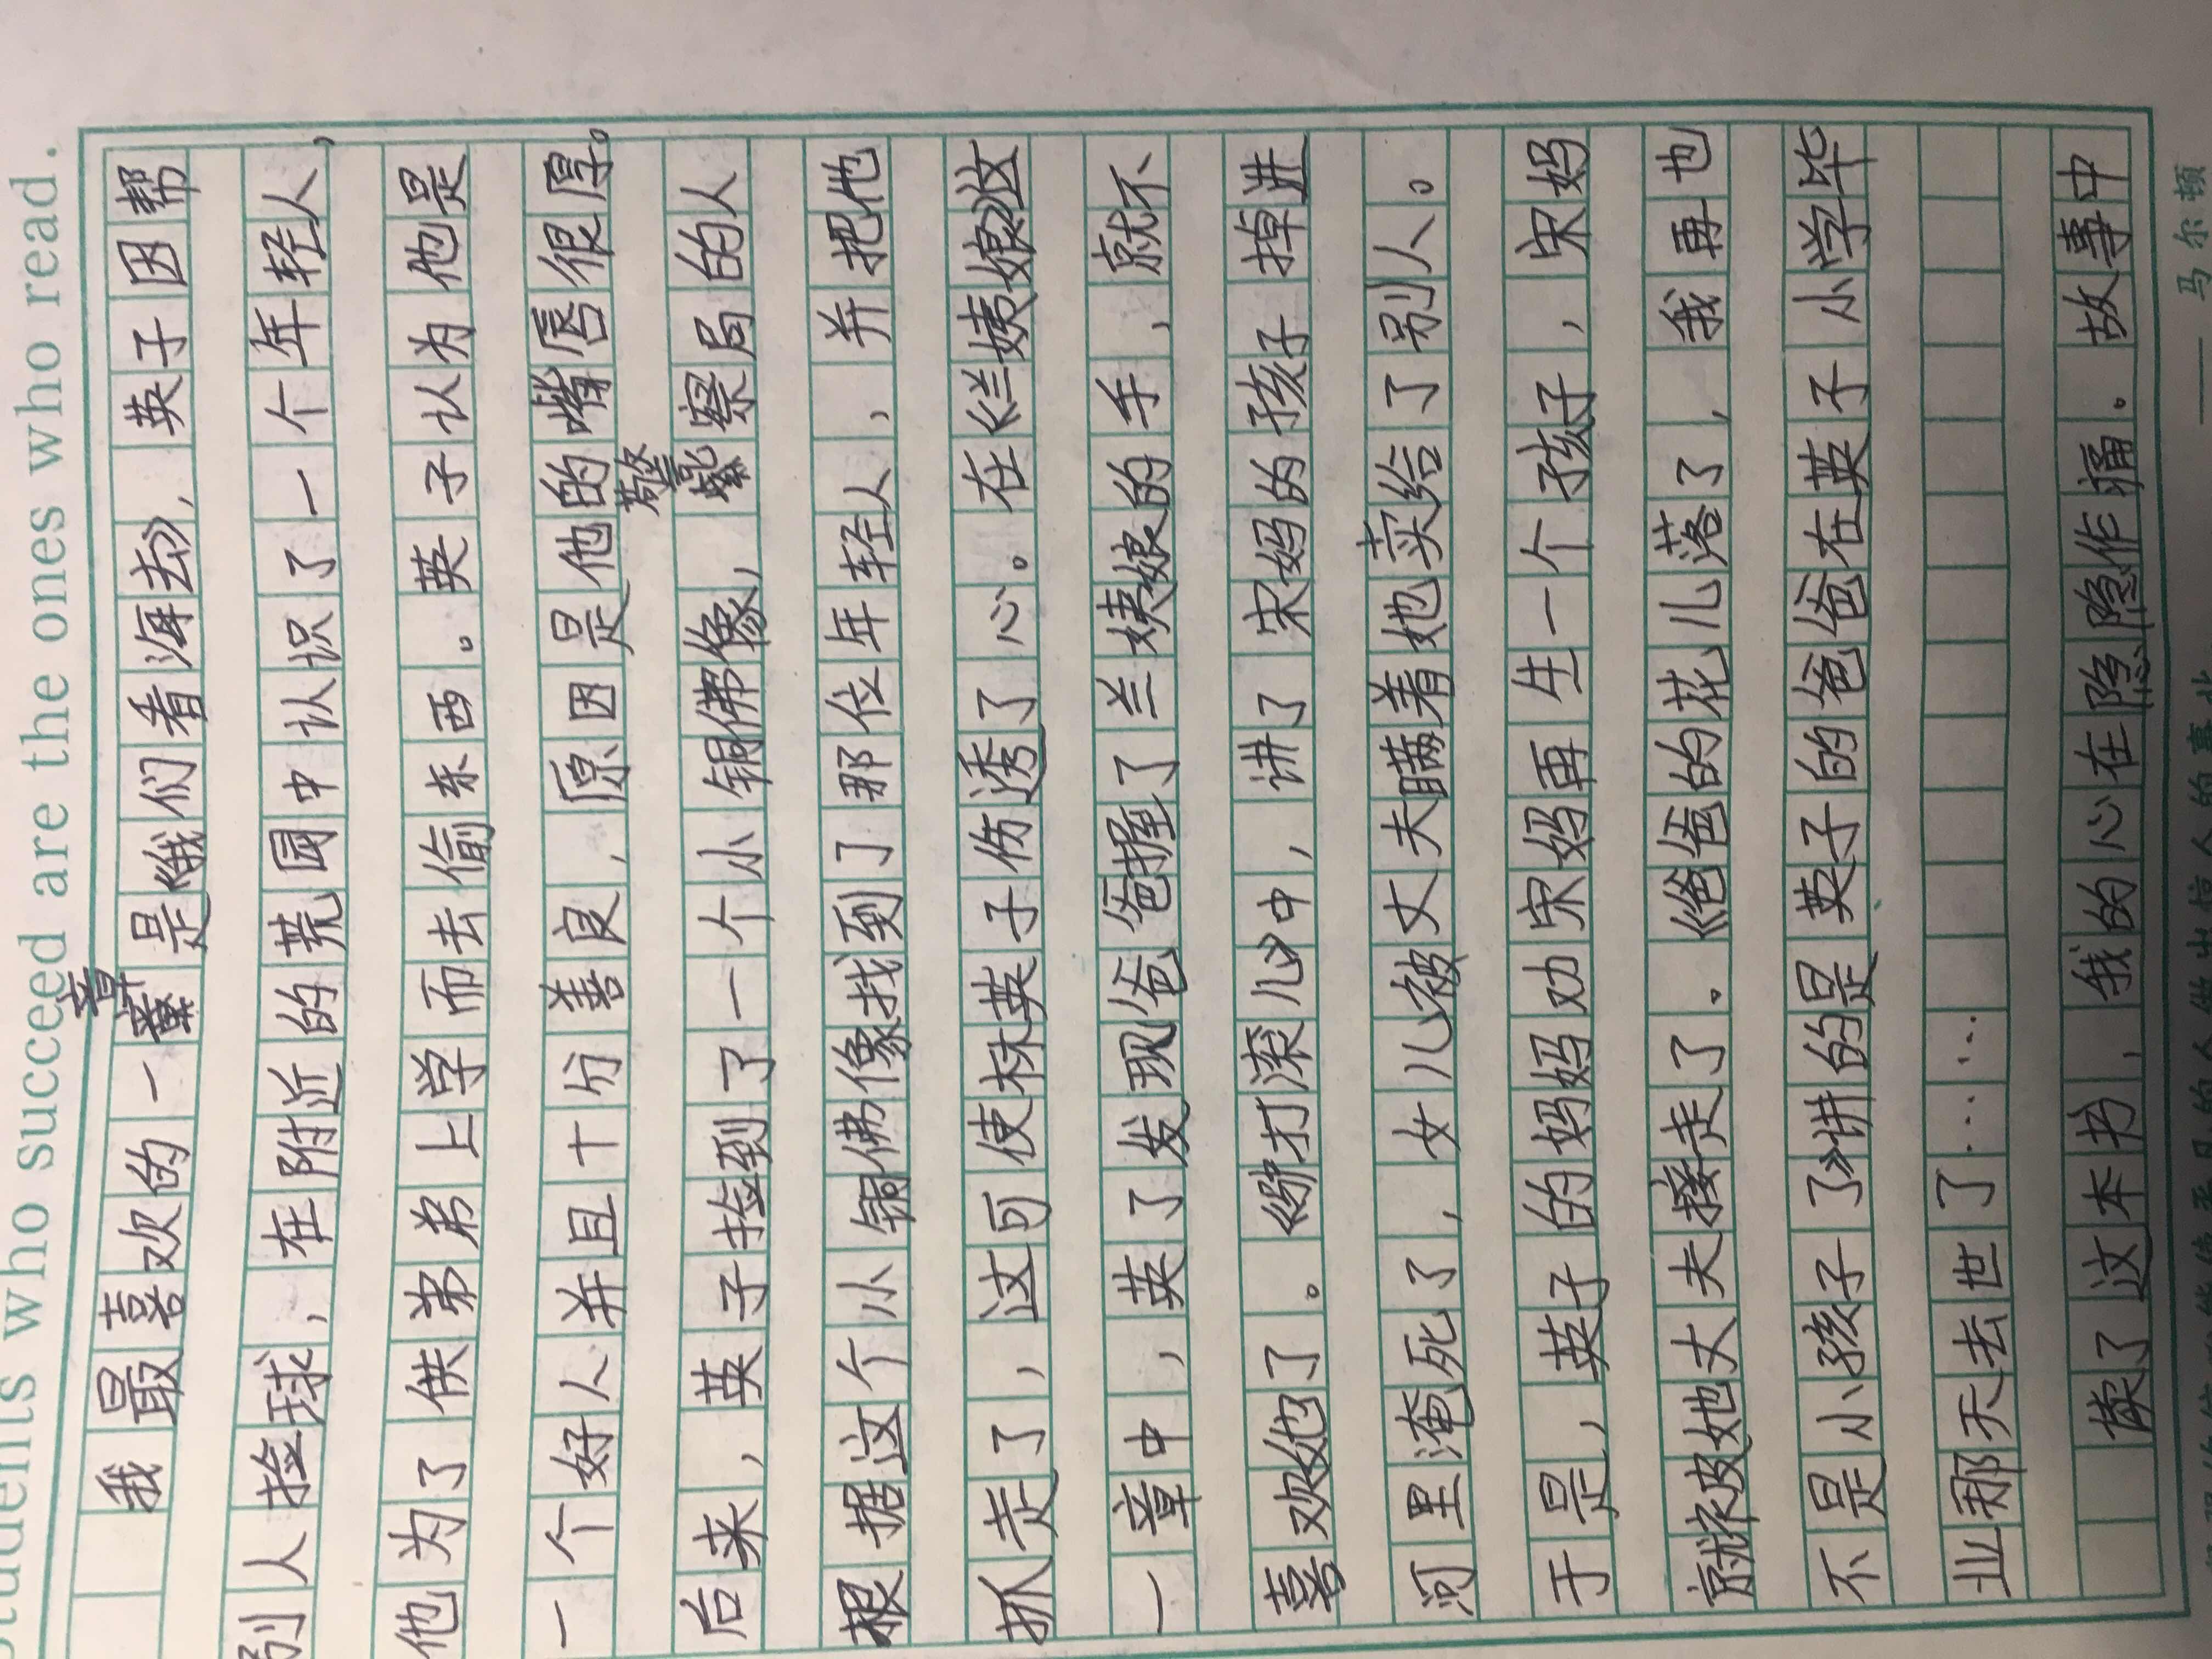 students who succeed are the ones who read.
我最喜欢的一章是《我们看海去》，英子因帮
别人捡球，在附近的荒园中认识了一个年轻人，
他为了供弟弟上学而去偷东西。英子认为他是
一个好人并且十分善良，原因是他的嘴唇很厚。
后来，英子捡到了一个小铜佛像，警察局的人
根据这个小铜佛像找到了那位年轻人，并把他
抓走了，这可使林英子伤透了心。在《兰姨娘》这
一章中，英了发现爸爸握了兰姨娘的手，就不
喜欢她了。《驴打滚儿》中，讲了宋妈的孩子掉进
河里淹死了，女儿被丈夫瞒着她卖给了别人。
于是，英子的妈妈劝宋妈再生一个孩子，宋妈
就被她丈夫接走了。《爸爸的花儿落了，我再也
不是小孩子了》讲的是英子的爸爸在英子小学毕
业那天去世了……
读了这本书，我的心在隐隐作痛。故事中
——马尔顿